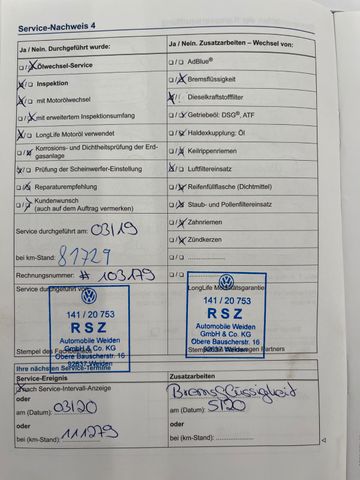 Service-Nachweis 4
Ja / Nein. Durchgeführt wurde:
Ölwechsel-Service
Inspektion
mit Motorölwechsel
mit erweitertem Inspektionsumfang
LongLife Motoröl verwendet
Korrosions- und Dichtheitsprüfung der Erd-
gasanlage
Prüfung der Scheinwerfer-Einstellung
Reparaturempfehlung
Kundenwunsch
(auch auf dem Auftrag vermerken)
Service durchgeführt am: 03/19
bei km-Stand: 81729
Rechnungsnummer: # 103179
Service durchgeführt von:
141 / 20 753
RSZ
Automobile Weiden
GmbH & Co. KG
Obere Bauscherstr. 16
92637 Weiden
Stempel des
Ja / Nein. Zusatzarbeiten – Wechsel von:
AdBlue®
Bremsflüssigkeit
Dieselkraftstofffilter
Getriebeöl: DSG®, ATF
Haldexkupplung: Öl
Keilrippenriemen
Luftfiltereinsatz
Reifenfüllflasche (Dichtmittel)
Staub- und Pollenfiltereinsatz
Zahnriemen
Zündkerzen
LongLife Mobilitätsgarantie
141 / 20 753
RSZ
Automobile Weiden
GmbH & Co. KG
Obere Bauscherstr. 16
92637 Weiden
Partners
Ihre nächsten Service-Termine
Service-Ereignis
nach Service-Intervall-Anzeige
oder
am (Datum): 03/20
oder
bei (km-Stand): 111279
Zusatzarbeiten
Bremsflüssigkeit
am (Datum): 5/20
oder
bei (km-Stand):